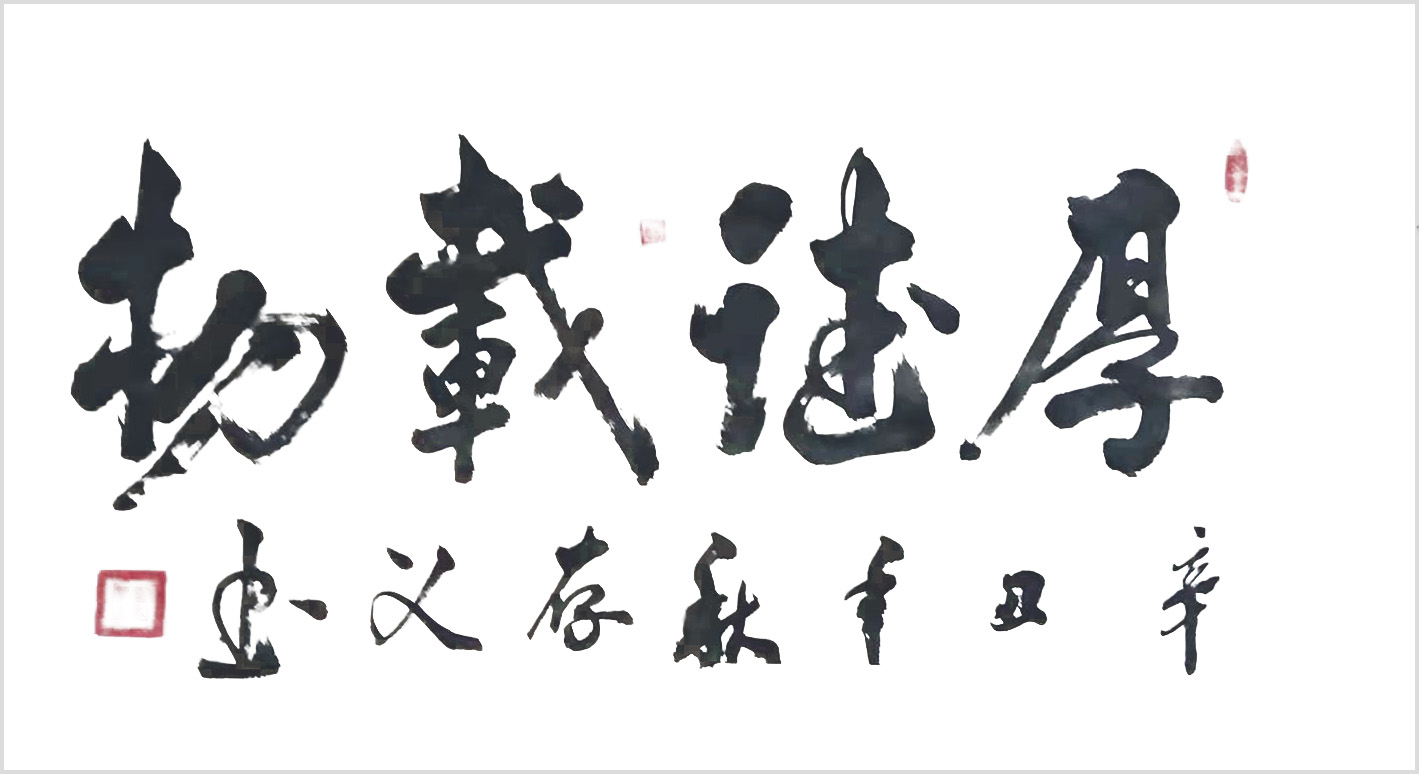 厚德載物
辛丑年秋存义书